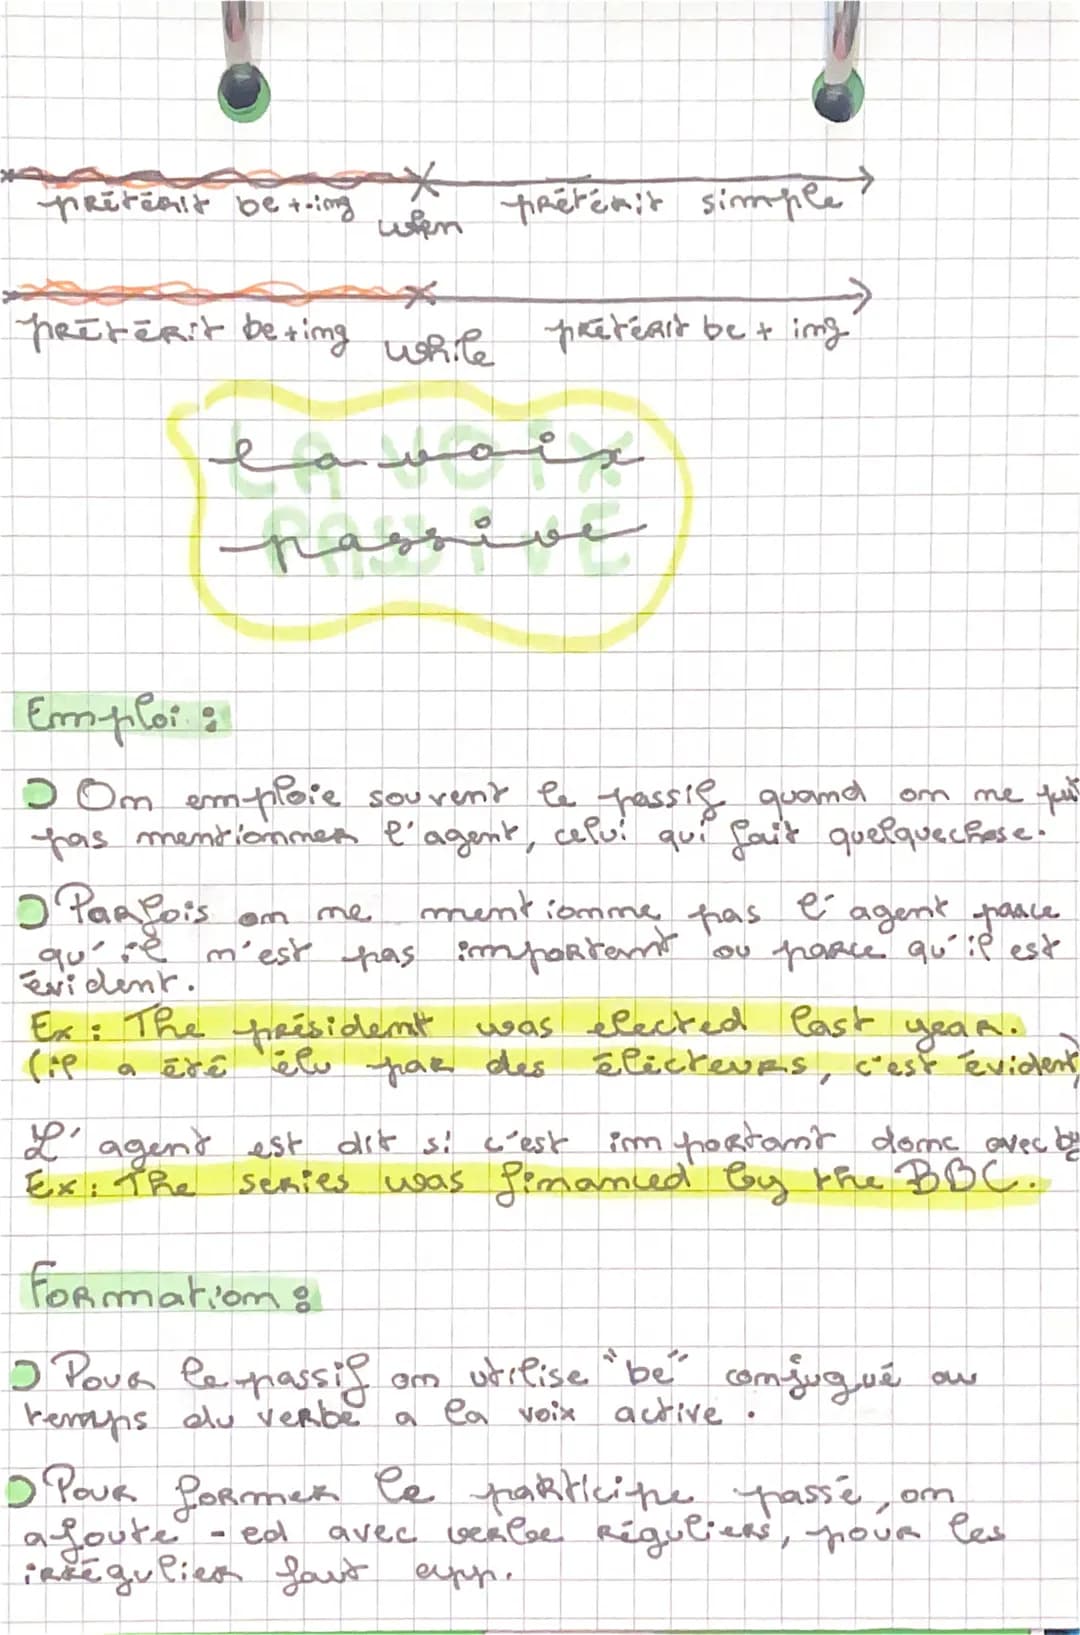 prétérit be +-ing when prétérit simple
prétérit be +ing while prétérit be + ing
LA VOIX
la voix
PASSIVE
passive
Emploi :
On emploie souvent le passif quand on ne
pas mentionner l'agent, celui qui fait quelquechose.
Parfois on ne mentionne pas l'agent parce
qu'il n'est pas important ou parce qu'il est
évident.
Ex : The président was elected last year.
(il a été élu par des électeurs, c'est évident)
L'agent est dit si c'est important donc avec by
Ex : The series was financed by the BBC.
Formation :
Pour le passif on utilise "be" conjugué au
temps du verbe a la voix active.
Pour former le participe passé, on
ajoute -ed avec verbe réguliers, pour les
irrégulier faut app.